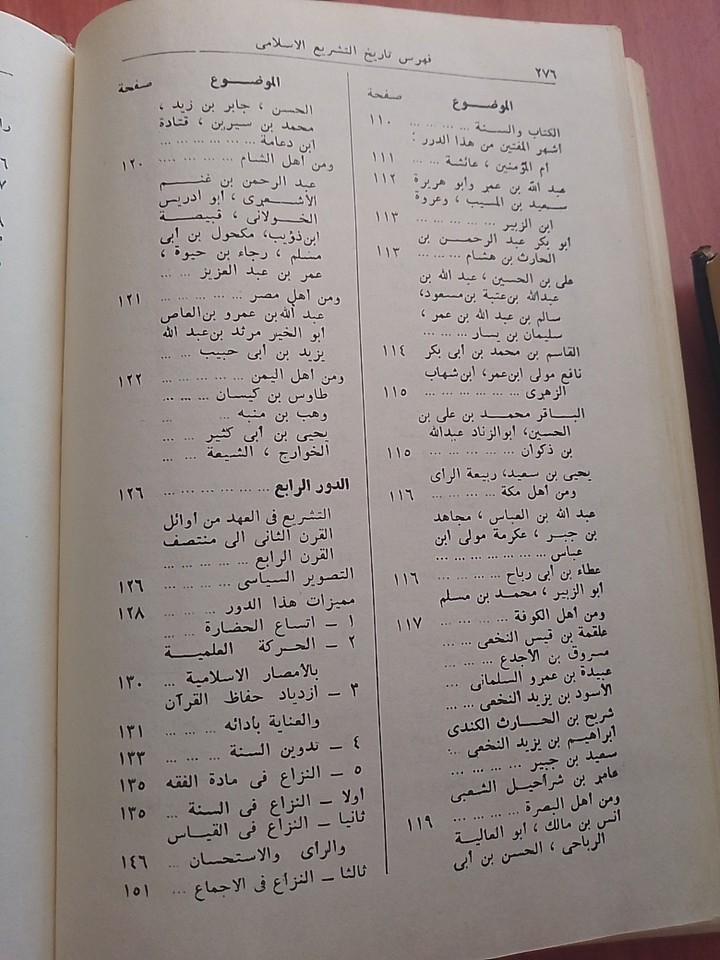 ٢٧٦
فهرس تاريخ التشريع الاسلامى
الموضوع صفحة
الكتاب والسنة ... ... ... ... ١١٠
اشهر المفتين من هذا الدور :
أم المؤمنين ، عائشة ... ... ١١١
عبد الله بن عمر وأبو هريرة ١١٢
سعيد بن المسيب ، وعروة
ابن الزبير ... ... ... ... ... ١١٣
أبو بكر عبد الرحمن بن
الحارث بن هشام ... ... ... ١١٣
على بن الحسين ، عبد الله بن
عبدالله بن عتبة بن مسعود،
سالم بن عبد الله بن عمر ،
سليمان بن يسار ... ... ...
القاسم بن محمد بن أبى بكر ١١٤
نافع مولى ابن عمر، ابن شهاب
الزهرى ... ... ... ... ... ... ١١٥
الباقر محمد بن على بن
الحسين، ابو الزناد عبدالله
بن ذكوان ... ... ... ... ١١٥
يحيى بن سعيد، ربيعة الراى
ومن أهل مكة ... ... ... ... ١١٦
عبد الله بن العباس ، مجاهد
بن جبر ، عكرمة مولى ابن
عباس ... ... ... ... ... ... ...
عطاء بن أبى رباح ... ... ... ١١٦
أبو الزبير ، محمد بن مسلم
ومن أهل الكوفة ... ... ... ... ١١٧
علقمة بن قيس النخعى ... ...
مسروق بن الأجدع ... ... ...
عبيدة بن عمرو السلمانى ...
الأسود بن يزيد النخعى ... ...
شريح بن الحارث الكندى
ابراهيم بن يزيد النخعى ...
سعيد بن جبير ... ... ... ...
عامر بن شراحيل الشعبى
ومن أهل البصرة ... ... ... ... ١١٩
انس بن مالك ، أبو العالية
الرياحى ، الحسن بن أبى
الموضوع صفحة
الحسن ، جابر بن زيد ،
محمد بن سيرين ، قتادة
ابن دعامة ... ... ... ... ... ...
ومن أهل الشام ... ... ... ... ١٢٠
عبد الرحمن بن غنم
الأشعرى ، أبو ادريس
الخولانى ، قبيصة
ابن ذؤيب، مكحول بن أبى
مسلم ، رجاء بن حيوة ،
عمر بن عبد العزيز ... ...
ومن أهل مصر ... ... ... ... ... ١٢١
عبد الله بن عمرو بن العاص
أبو الخير مرثد بن عبد الله
يزيد بن أبى حبيب ... ...
ومن أهل اليمن ... ... ... ... ... ١٢٢
طاوس بن كيسان ... ... ...
وهب بن منبه ... ...
يحيى بن أبى كثير ... ...
الخوارج ، الشيعة ... ...
الدور الرابع ... ... ... ... ... ... ١٢٦
التشريع فى العهد من أوائل
القرن الثانى الى منتصف
القرن الرابع ... ... ... ... ...
التصوير السياسى ... ... ... ... ١٢٦
مميزات هذا الدور ... ... ... ١٢٨
١ ــ اتساع الحضارة ... ...
٢ ــ الحركة العلمية
بالأمصار الاسلامية ... ... ١٣٠
٣ ــ ازدياد حفاظ القرآن
والعناية بأدائه ... ... ... ١٣١
٤ ــ تدوين السنة ... ... ... ١٣٣
٥ ــ النزاع فى مادة الفقه ١٣٥
أولا ــ النزاع فى السنة ... ١٣٥
ثانيا ــ النزاع فى القياس
والرأى والاستحسان ... ١٤٦
ثالثا ــ النزاع فى الاجماع ... ١٥١